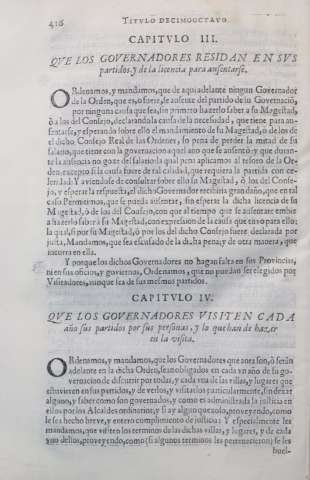 416 TITVLO DECIMOOCTAVO.
CAPITVLO III.
QVE LOS GOVERNADORES RESIDAN EN SVS
partidos, y de la licencia para ausentarse.
ORdenamos, y mandamos, que de aqui adelante ningun Governador
de la Orden, que es, ò fuere, se ausente del partido de su Governaciõ,
por ninguna causa que sea, sin primero hazerlo saber a su Magestad,
ò a los del Consejo, declarando la causa de la necesidad, que tiene para au-
sentarse, y esperando sobre ello el mandamiento de su Magestad, ò de los de
el dicho Consejo Real de las Ordenes, so pena de perder la mitad de su
salario, que tiene con la governacion aquel año que se ausentò y que duran-
te la ausencia no goze del salario: la qual pena aplicamos al tesoro de la Or-
den, excepto si la causa fuere de tal calidad, que requiera la partida con ce-
leridad: Y aviendose de consultar sobre ello su Magestad, ò los del Conse-
jo, y esperar la respuesta, el dicho Governador recibiria gran daño, que en tal
caso Permitimos, que se pueda ausentar, sin esperar la dicha licencia de su
Magestad, ò de los del Consejo, con que al tiempo que se ausentare embie
a hazerlo saber a su Magestad, con expresion de la causa que tuvo para ello;
la qual, si por su Magestad, ò por los del dicho Consejo fuere declarada por
justa, Mandamos, que sea escusado de la dicha pena; y de otra manera, que
incurra en ella.
Y porque los dichos Governadores no hagan falta en sus Provincias,
ni en sus oficios, y goviernos, Ordenamos, que no puedan ser elegidos por
Visitadores, aunque sea de sus mesmos partidos.
CAPITVLO IV.
QVE LOS GOVERNADORES VISITEN CADA
año sus partidos por sus personas, y lo que han de hazer
en la visita.
ORdenamos, y mandamos, que los Governadores que aora son, ò seràn
adelante en la dicha Orden, sean obligados en cada vn año de su go-
vernacion de discurrir por todas, y cada vna de las villas, y lugares que
estuvieren en sus partidos, y de verlos, y visitarlos particularmente, sin dexar
alguno, y saber como son governados, y como es administrada la justicia en
ellos por los Alcaldes ordinarios, y si ay alguno quexoso, proveyendo, como
le sea hecho breve, y entero complimiento de justicia: Y especialmente les
mandamos, que visiten los terminos de las dichas villas, y lugares, y de cada
vno dellos, proveyendo, como (si algunos terminos les pertenecieron) se les
buel-